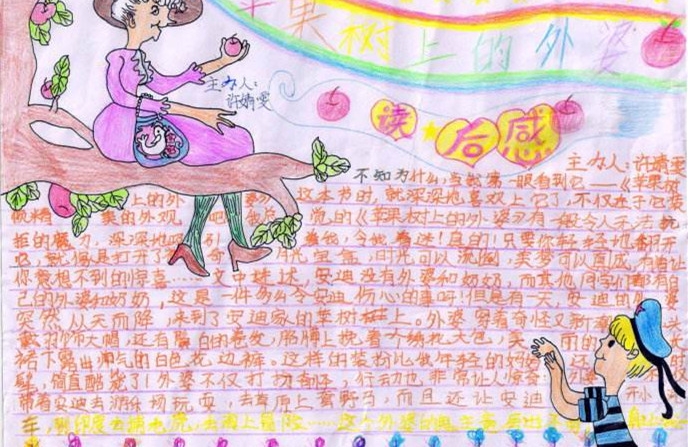 苹果树上的外婆
主办人：
许婧雯
读后感
主办人：许婧雯
不知为什么，当我第一眼看到它——《苹果树
上的外婆》这本书时，就深深地喜欢上它了，不仅在于它装
帧精美的外观，《苹果树上的外婆》有一股令人无法抗
拒的魔力，深深地吸引着我，令我着迷！真的！只要你轻轻地翻开
它，就像是打开了时光宝盒，时光可以流倒，美梦可以直成，有着让
你意想不到的惊喜……文中描述，安迪没有外婆和奶奶，而其他同学们都有自
己的外婆和奶奶，这是一件多么令安迪伤心的事呀！但是有一天，安迪的外婆
突然从天而降，来到了安迪家的苹果树上。外婆穿着奇怪又新
戴羽饰大帽，还有白的卷发，胳膊上挽着大包，
裙下露出帅气的白色花边裤。这样的装扮比做年轻的妈妈还
髦，简直酷毙了！外婆不仅打扮奇怪，行动也非常让人惊奇，不仅
带着安迪去游乐场玩耍，去草原上套野马，而且还让安迪开
车，到印度去捕老虎，去海上冒险……这个外婆